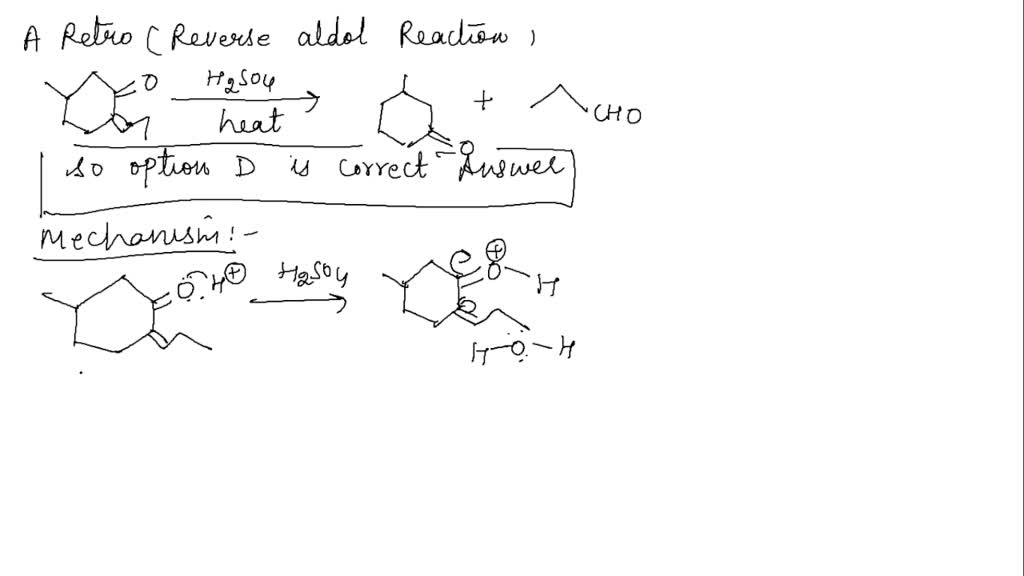 A Retro (Reverse aldol Reaction)
O H2SO4 heat + CHO
O
so option D is correct Answer
Mechanism:-
O H + H2SO4 + O H
H O H